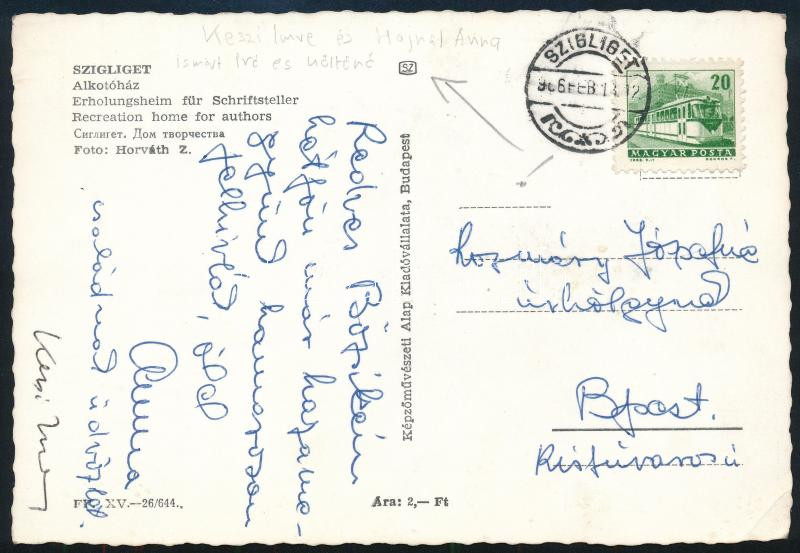 Keszi Imre és Hajnal Anna
ismert író és költőnő
SZIGLIGET
Alkotóház
Erholungsheim für Schriftsteller
Recreation home for authors
Сиглигет. Дом творчества
Foto: Horváth Z.
SZ
SZIGLIGET
966 FEB 13. 12
20
MAGYAR POSTA
Kedves Bözsikém
hétfőn már hazame-
gyünk hamarosan
felhívlak, ölel
Anna
családnak üdvözlet
Keszi Imre
Képzőművészeti Alap Kiadóvállalata, Budapest
Kozmány Józsefné
úrhölgynek
Bpest.
Kisfúvarosú
FK. XV.—26/644.
Ára: 2,— Ft